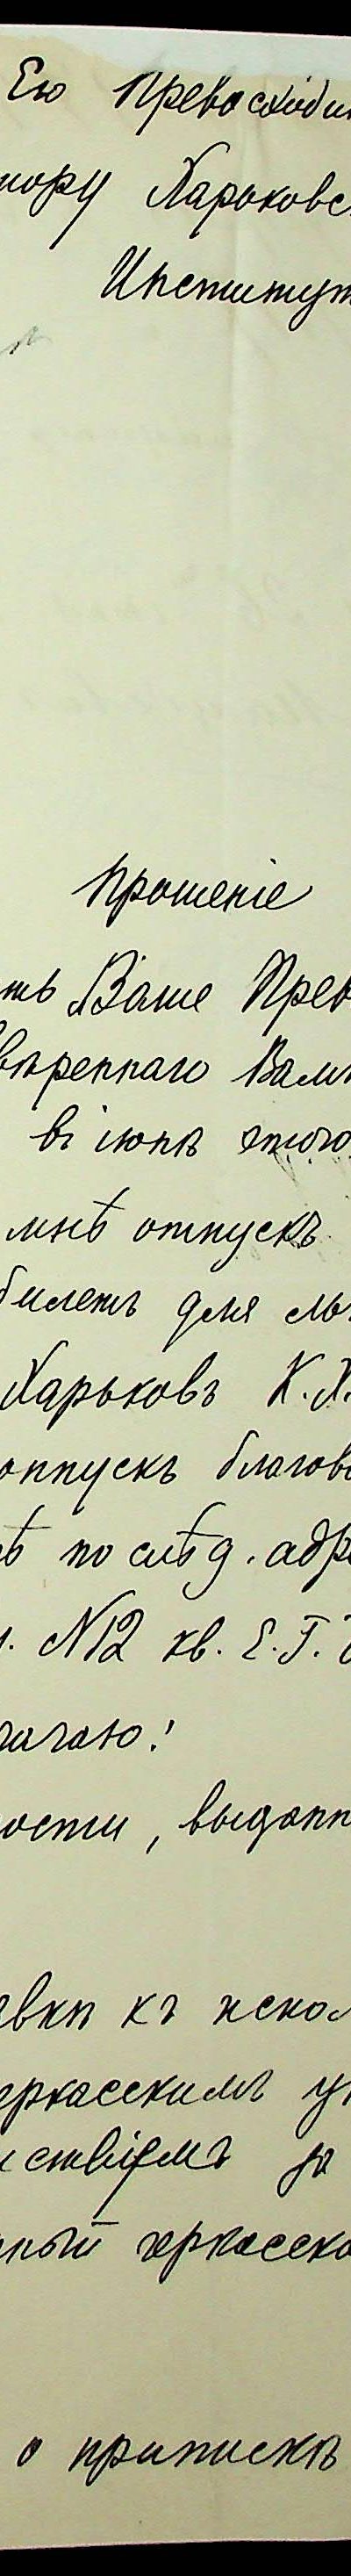 Его Превосходи
тору Харьковс
Институт
Прошеніе
ть Ваше Прев
ввѣреннаго Вами
въ іюнѣ этого
мнѣ отпускъ
билетъ для
Харьковъ К.Х.
отпускъ благово
ѣ по слѣд. адре
. №12 кв. Е.Г.
ачаю!
ности, выданн
авки къ испол
еркасскимъ у
ствіемъ за
нный черкасск
о припискѣ